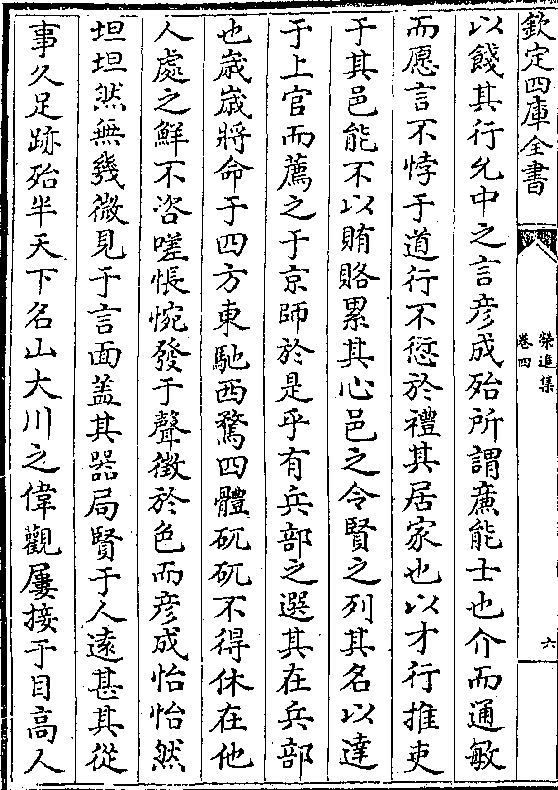 欽定四庫全書
榮進集
卷四
六
以餞其行允中之言彦成殆所謂亷能士也介而通敏
而愿言不悖于道行不愆於禮其居家也以才行推吏
于其邑能不以賄賂累其心邑之令賢之列其名以達
于上官而薦之于京師於是乎有兵部之選其在兵部
也歳歳將命于四方東馳西騖四體矻矻不得休在他
人處之鮮不咨嗟悵惋發于聲徵於色而彦成怡怡然
坦坦然無幾微見于言面盖其器局賢于人逺甚其從
事久足跡殆半天下名山大川之偉觀屢接于目高人